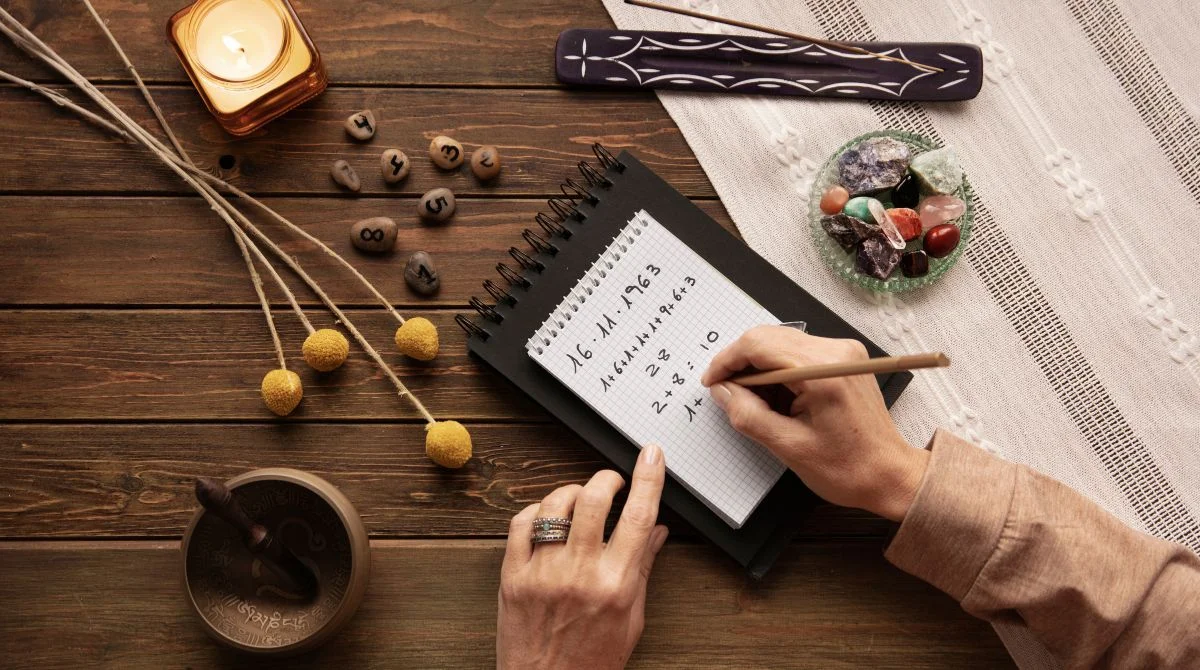 4
4
3
5
8
16.11.1963
1+6+1+1+1+9+6+3
28
2+8= 10
1+